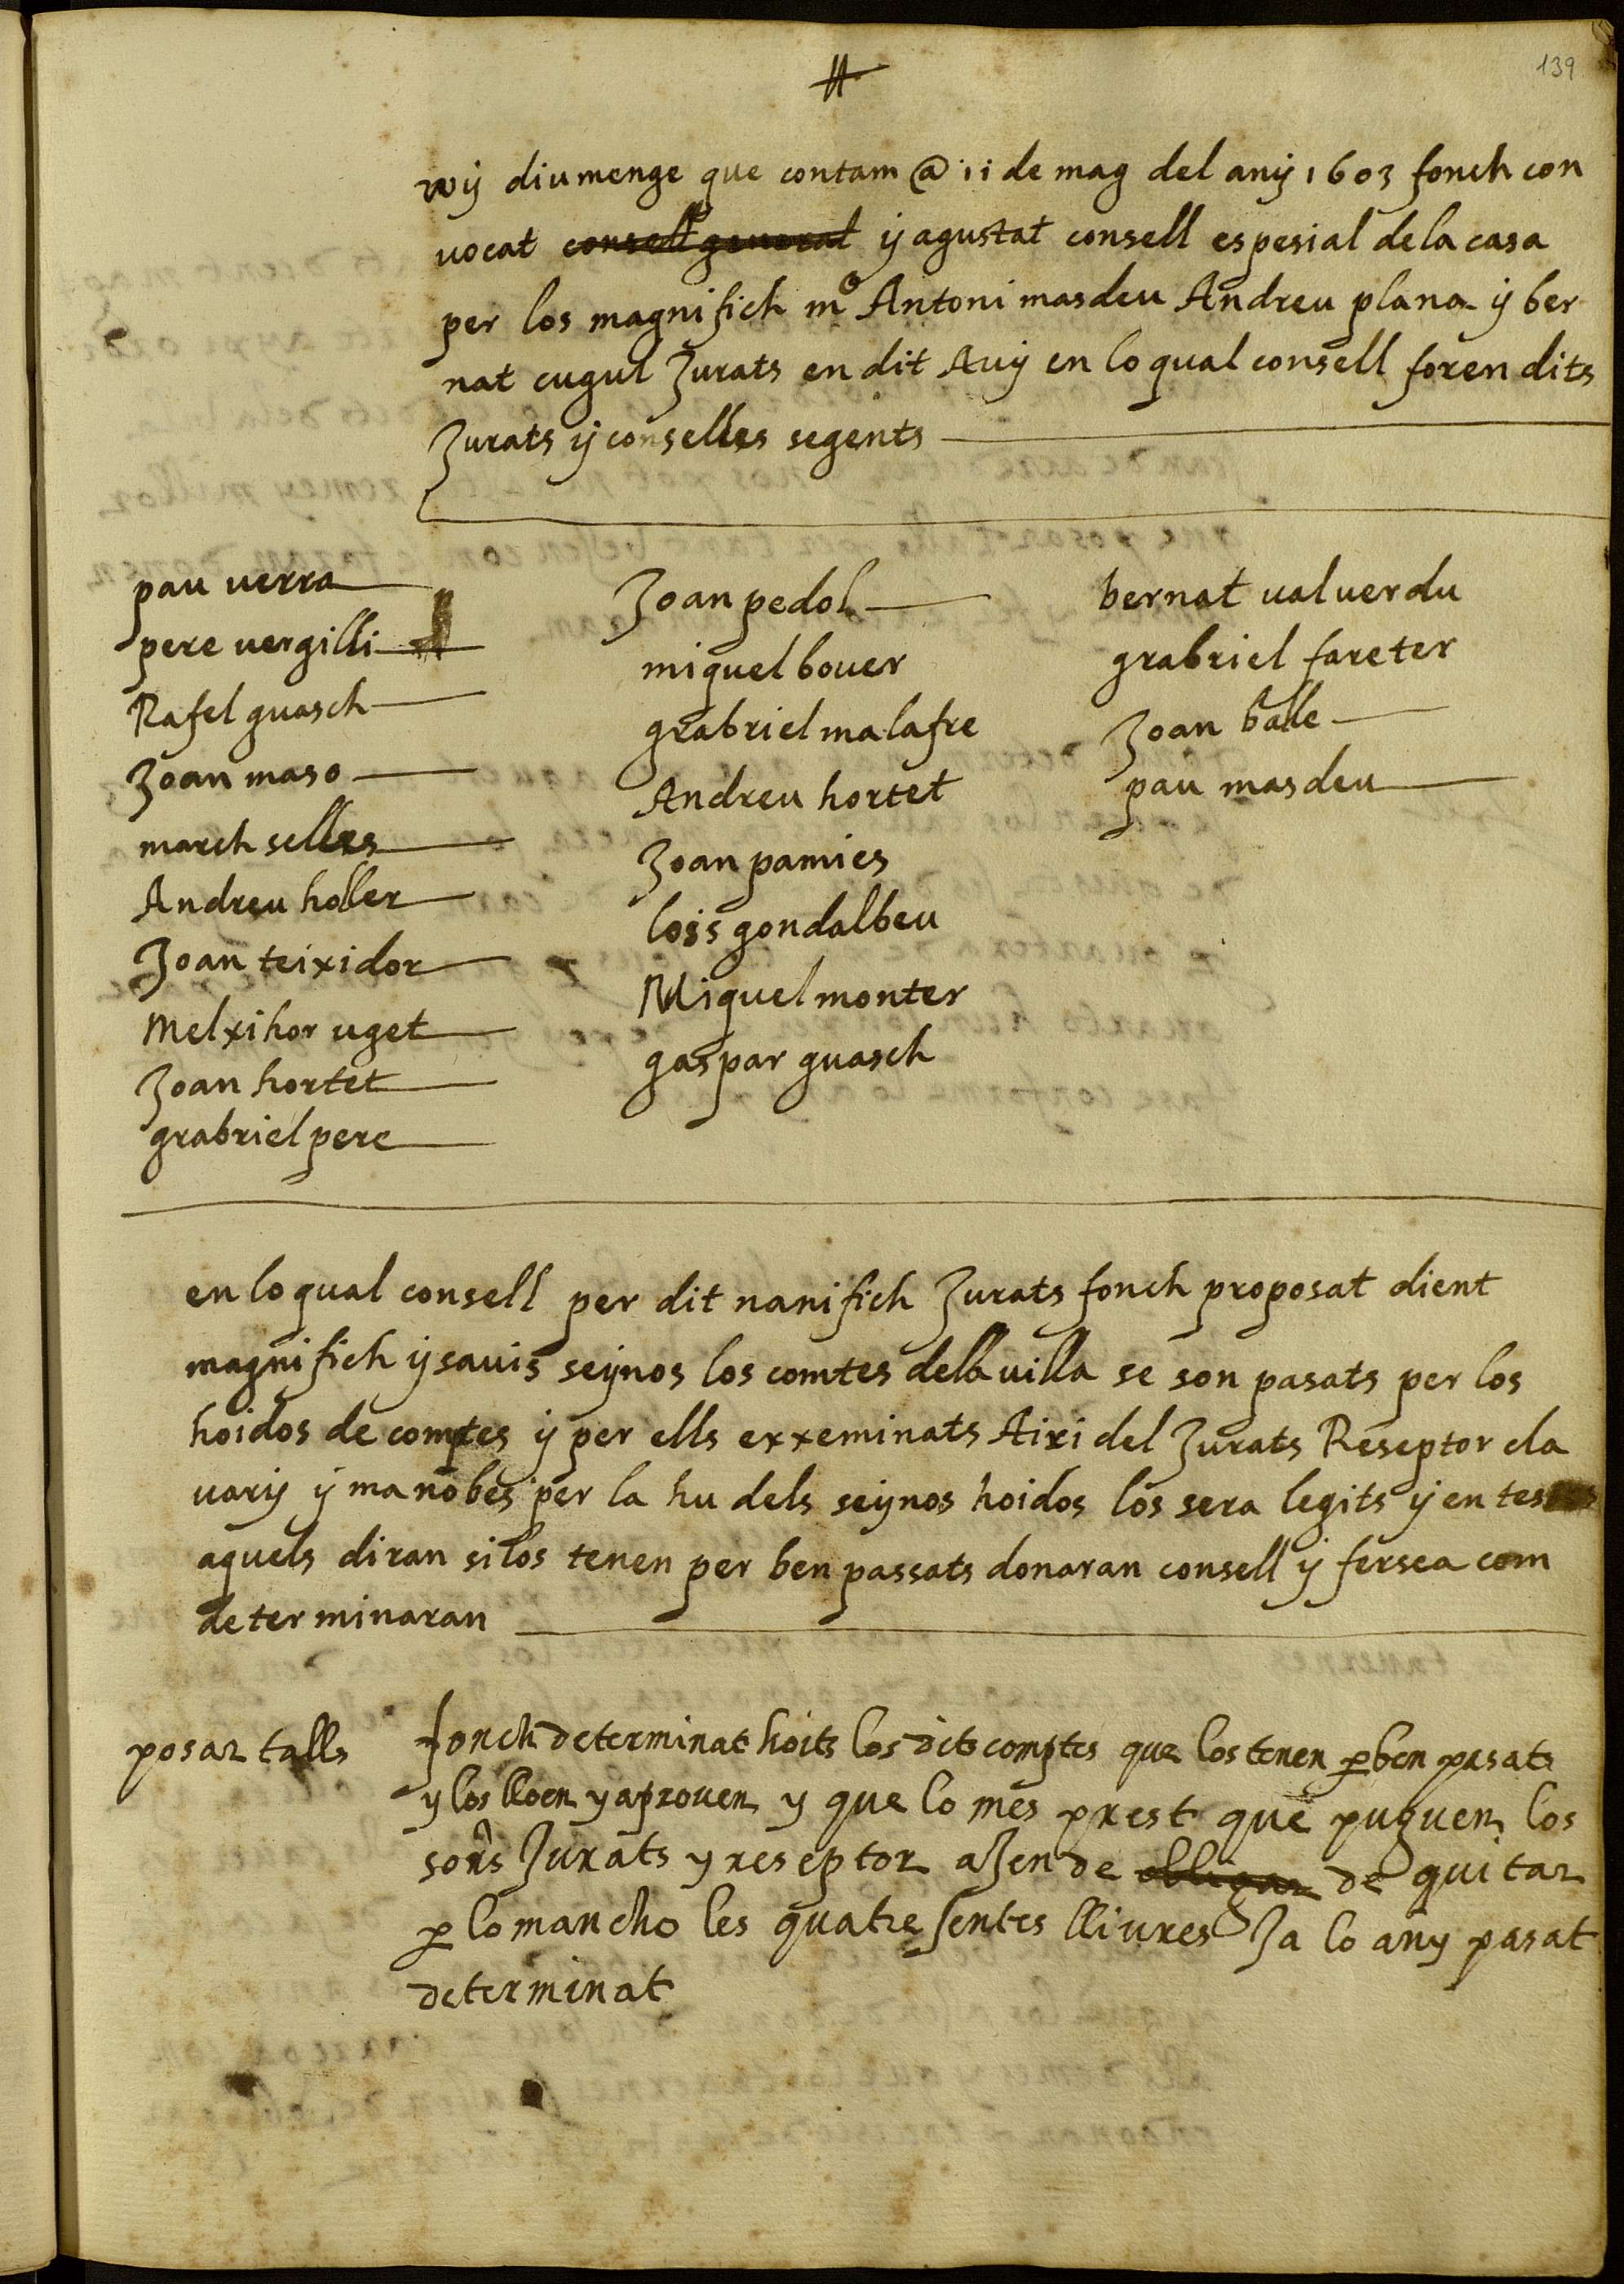 139
vuÿ diumenge que contam @ 11 de mag del anÿ 1603 fonch con
uocat consell general ÿ agustat consell espesial de la casa
per los magnifich mº Antoni masdeu Andreu plana ÿ ber
nat cugul Jurats en dit Auÿ en lo qual consell foren dits
Jurats ÿ conselles segents
pau uerra
pere uergilli
Rafel guasch
Joan maso
march selles
Andreu holler
Joan teixidor
Melxihor uget
Joan hortet
grabriel pere
Joan pedol
miquel bouer
grabriel malafre
Andreu hortet
Joan pamies
lois gondalbeu
Miquel monter
gaspar guasch
bernat ualuerdu
grabriel fareter
Joan balle
pau masdeu
en lo qual consell per dit nanifich Jurats fonch proposat dient
magnifich ÿ sauis seÿnos los comtes de la uilla se son pasats per los
hoidos de comptes ÿ per ells exxeminats Airi del Jurats Reseptor cla
uarÿ ÿ manobes per la hu dels seÿnos hoidos los sera legits ÿ en tes
aquels diran si los tenen per ben passats donaran consell ÿ fersea com
determinaran
posar talls
fonch determinat hoits los dits comptes que los tenen p ben pasats
y los lloen y aprouen y que lo mes prest que puguen los
sors Jurats y reseptor ajen de obligar de quitar
p lo mancho les quatre sentes lliures Ja lo any pasat
determinat